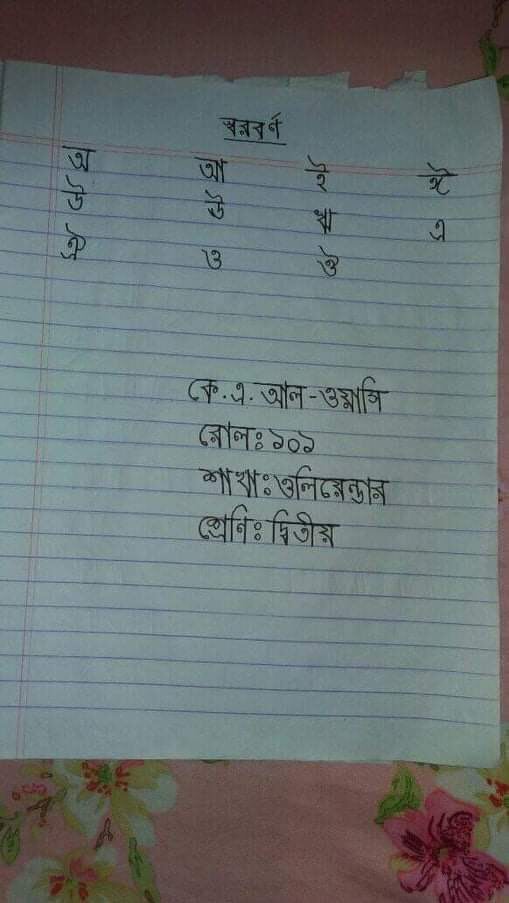 স্বরবর্ণ
অ আ ই ঈ
উ ঊ ঋ এ
ঐ ও ঔ
কে. এ. আল-ওয়াসি
রোল: ১০১
শাখা: ওলিয়েন্ডার
শ্রেণি: দ্বিতীয়